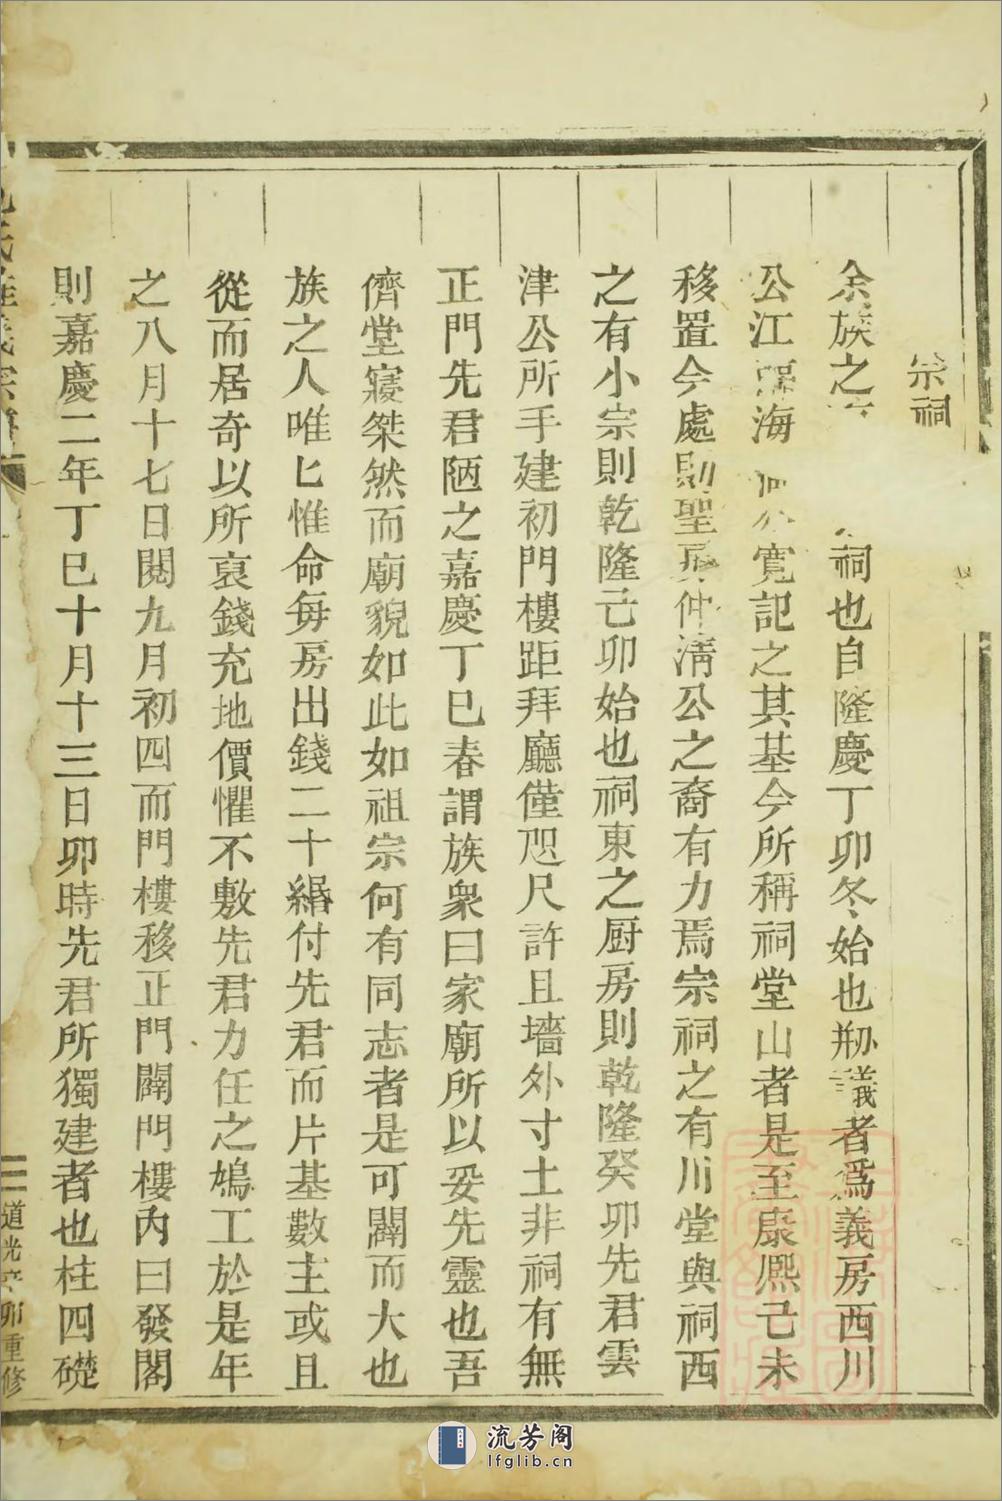 宗祠
余族之祠也自隆慶丁卯冬始也刱議者爲義房西川
公江海寬記之其基今所稱祠堂山者是至康熙己未
移置今處則聖房仲淸公之裔有力焉宗祠之有川堂與祠西
之有小宗則乾隆己卯始也祠東之厨房則乾隆癸卯先君雲
津公所手建初門樓距拜廳僅咫尺許且墻外寸土非祠有無
正門先君陋之嘉慶丁巳春謂族衆曰家廟所以妥先靈也吾
儕堂寢桀然而廟貌如此如祖宗何有同志者是可闢而大也
族之人唯匕惟命每房出錢二十緡付先君而片基數主或且
從而居奇以所裒錢充地價懼不敷先君力任之鳩工於是年
之八月十七日閱九月初四而門樓移正門闢門樓內曰發閣
則嘉慶二年丁巳十月十三日卯時先君所獨建者也柱四礎
氏族宗譜
道光辛卯重修
流芳阁
lfglib.cn